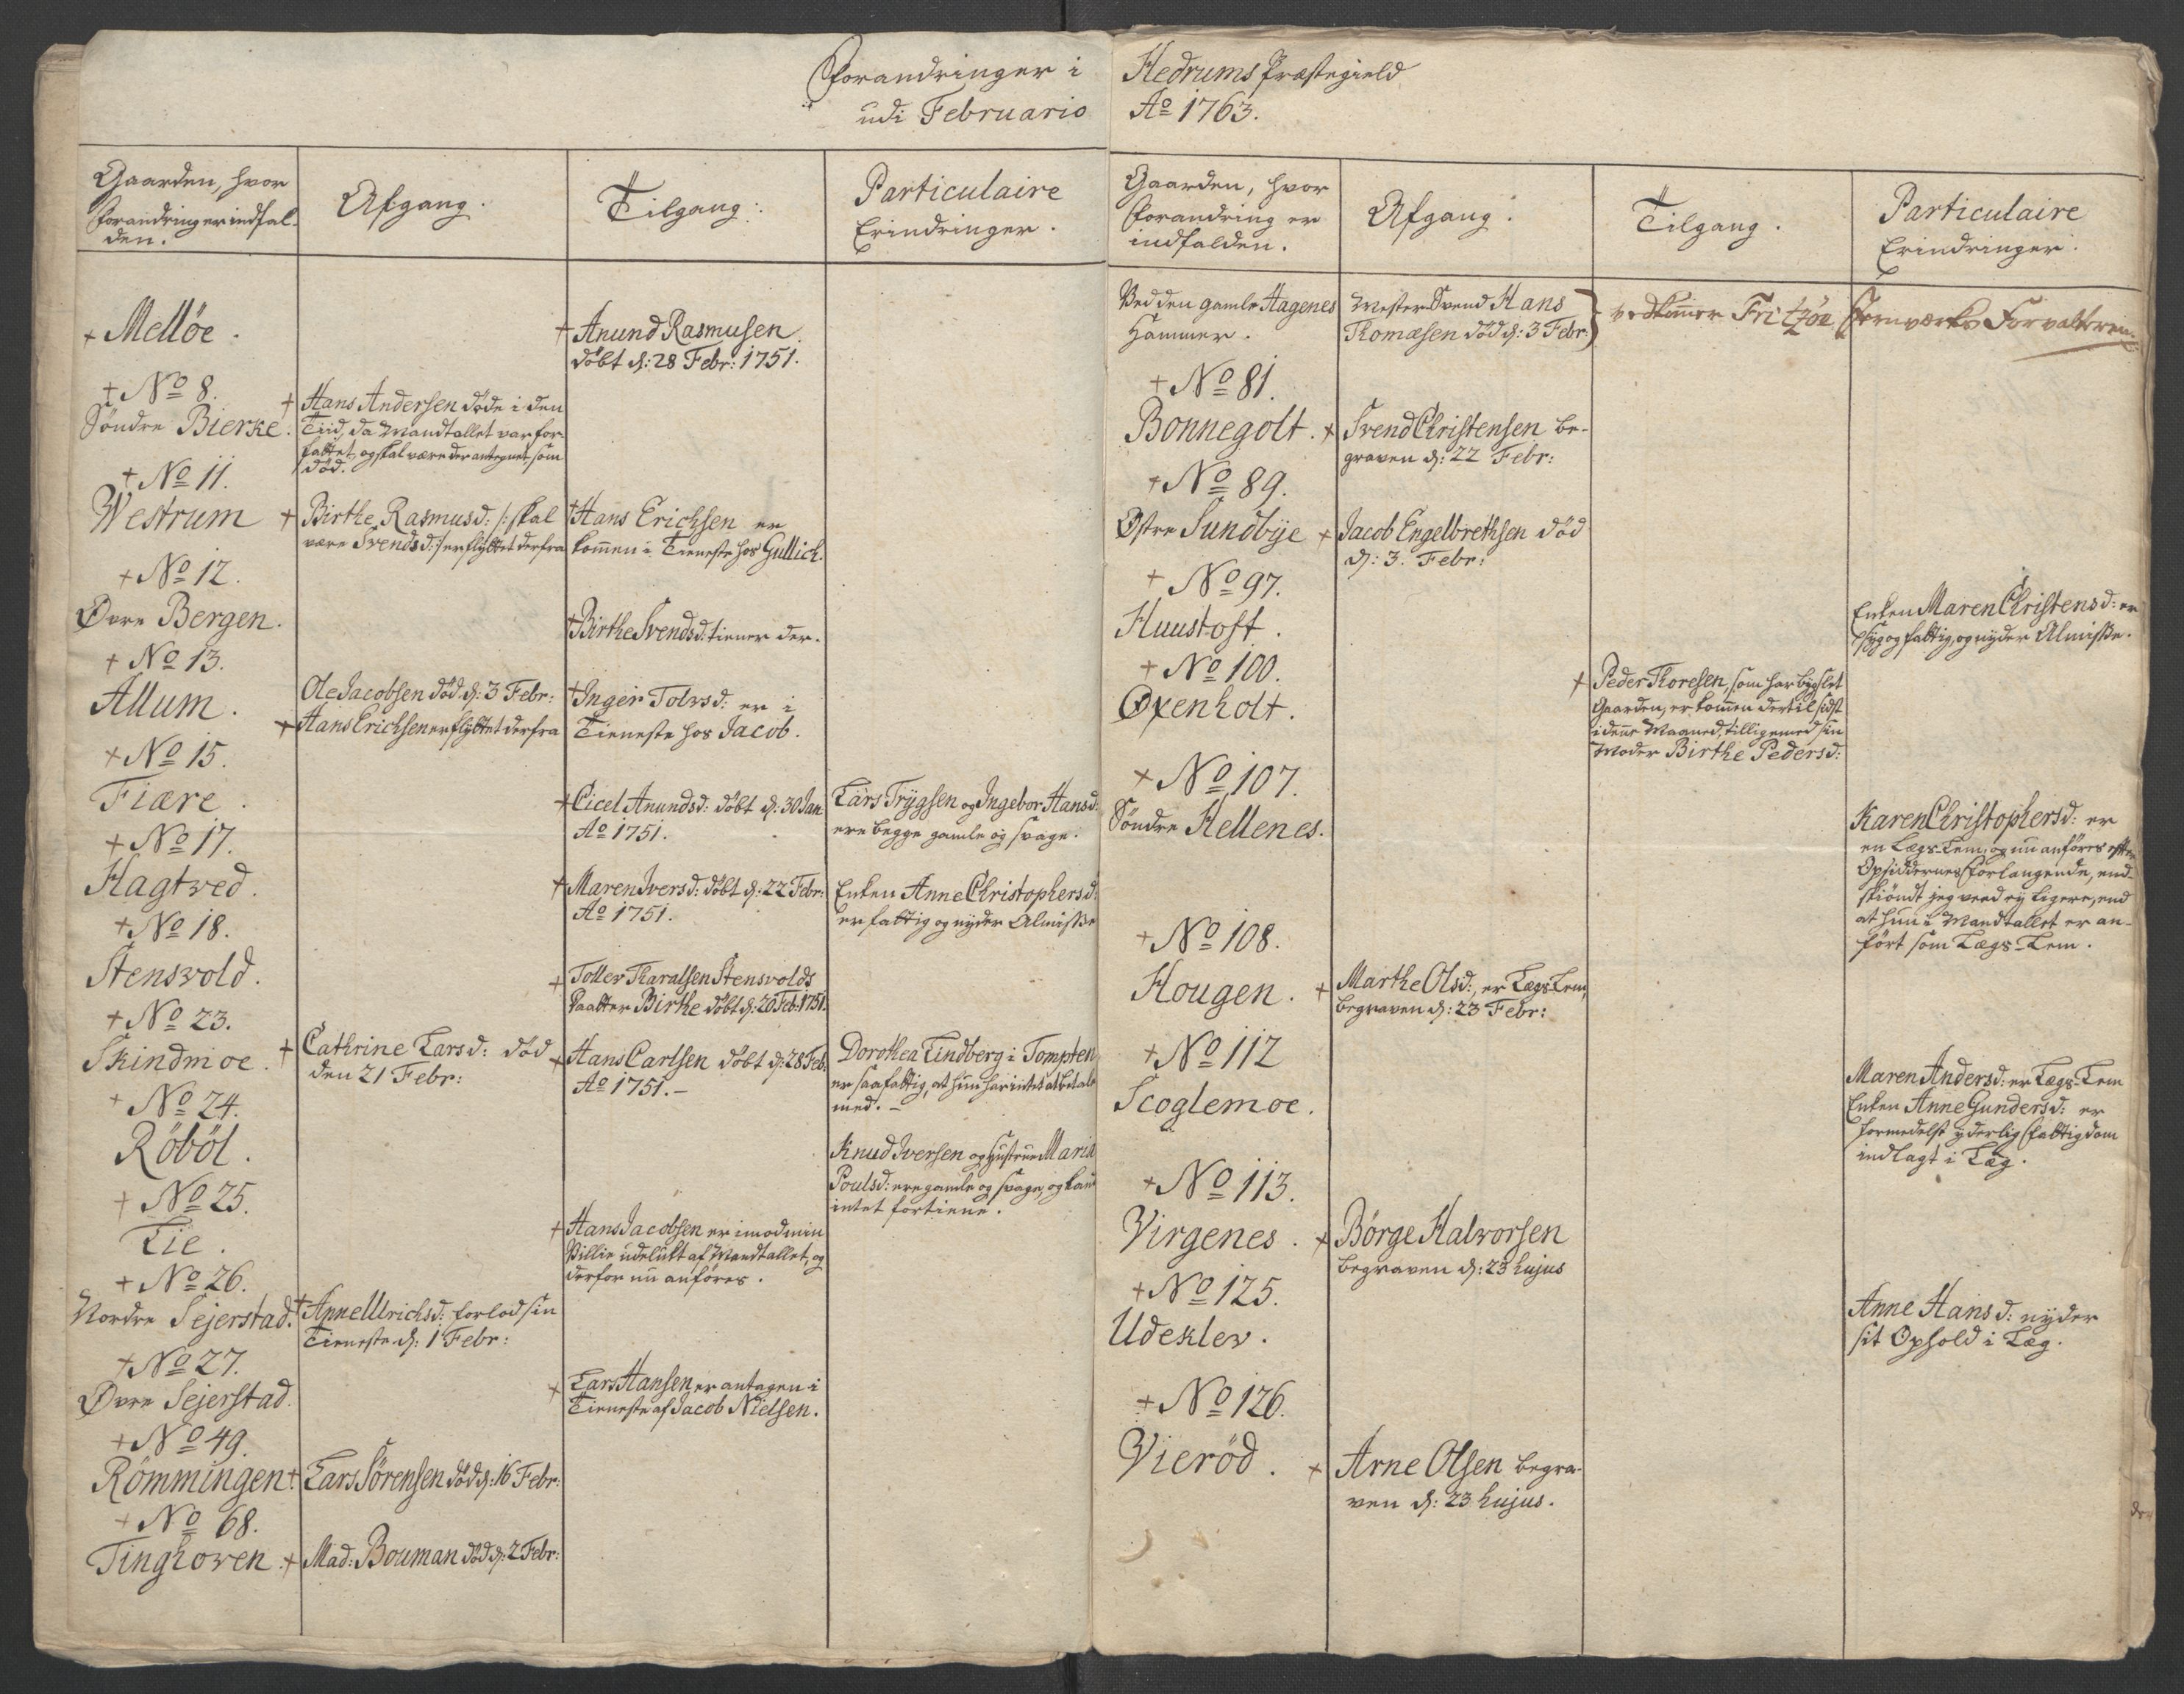 Forandringer i
udi Februario
Gaarden, hvor
Forandring er indfal-
den.
Afgang.
Tilgang:
Particulaire
Erindringer.
+ Melløe.
+ Anund Rasmusen
døbt d: 28 Febr: 1751.
+ No 8.
Søndre Bierke.
+ Hans Andersen døde i den
Tiid, da Mandtallet var for-
fattet, og skal være der antegnet, som
død.
+ No 11.
Westrum
+ Birthe Rasmusd: /: skal
være Svendsd: :/ er flyttet derfra
+ Hans Erichsen er
kommen i Tieneste hos Gullich.
+ No 12.
Øvre Bergen.
+ Birthe Svendsd: tiener der.
+ No 13.
Allum.
Ole Jacobsen død d: 3 Febr:
+ Hans Erichsen er flyttet derfra
+ Inger Tolvsd: er i
Tieneste hos Jacob.
+ No 15.
Fiære.
+ Cicel Anundsd: døbt d: 30 Jan
Ao 1751.
Lars Trygsen og Ingebor Hansd:
ere begge gamle og svage.
+ No 17.
Hagtved.
+ Maren Iversd: døbt d: 22 Febr:
Ao 1751.
Enken Anne Christophersd:
er fattig og nyder Almisse
+ No 18.
Stensvold.
+ Tollev Haralsen Stensvolds
Daatter Birthe døbt d: 20 Feb: 1751.
+ No 23.
Skindmoe.
+ Cathrine Larsd: død
den 21 Febr:
+ Hans Carlsen døbt d: 28 Feb:
Ao 1751. -
Dorothea Lindberg i Tompten
er saa fattig, at hun har intet at betale
med. -
+ No 24.
Röböl.
Knud Iversen og Hustrue Maria
Poulsd: ere gamle og svage, og kand
intet fortiene.
+ No 25.
Lie.
+ Hans Jacobsen er imod min
Villie udelukt af Mandtallet, og
derfor nu anføres.
+ No 26.
Nordre Sejerstad.
+ Anne Ulrichsd: forlod sin
Tieneste d: 1 Febr:
+ No 27.
Øvre Sejerstad
+ Lars Hansen er antagen i
Tieneste af Jacob Nielsen.
+ No 49.
Römmingen
+ Lars Sörensen død d: 16 Febr:
+ No 68.
Tinghoven.
+ Mad: Bouman død d: 2 Febr:
Hedrums Præstegield
Ao 1763.
Gaarden, hvor
Forandring er
indfalden.
Afgang.
Tilgang.
Particulaire
Erindringer.
Ved den gamle Hagenes
Hammer.
Mester Svend Hans
Thomæsen død d: 3 Febr:
vedkommer Fritzöe Jernværks Forvalteren.
+ No 81.
Bonnegolt.
+ Svend Christensen be-
graven d: 22 Febr:
+ No 89.
Østre Sundbye
+ Jacob Engelbrethsen død
d: 3. Febr:
+ No 97.
Huustoft.
Enken Maren Christensd: er
syg og fattig, og nyder Almisse.
+ No 100.
Oxenholt.
+ Peder Thoresen, som har bygslet
Gaarden, er kommen dertil sidst
i denne Maaned, tilligemed sin
Moder Birthe Pedersd:
+ No 107.
Søndre Hellenes.
Karen Christophersd: er
en Lægs-Lem, og nu anføres efter
Opsiddernes Forlangende, end-
skiøndt jeg veed ey rigere, end
at hun i Mandtallet er an-
ført som Lægs-Lem.
+ No 108.
Hougen.
+ Marthe Olsd:, er Lægs Lem,
begraven d: 23 Febr:
+ No 112
Scoglemoe.
Maren Andersd: er Lægs-Lem
Enken Anne Gundersd: er
formedelst yderlig Fattigdom
indlagt i Læg.
+ No 113.
Virgenes.
+ Börge Halvorsen
begraven d: 23 hujus
+ No 125.
Udeklev.
Anne Hansd: nyder
sit Ophold i Læg.
+ No 126.
Vieröd.
+ Arne Olsen begra-
ven d: 23 hujus.